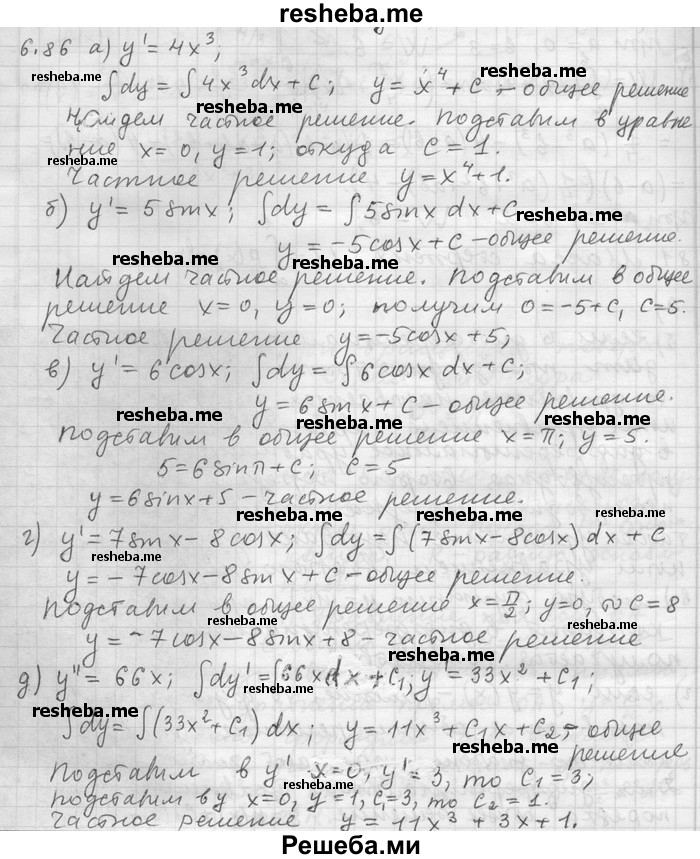 resheba.me
6.86 а) y' = 4x³;
resheba.me
∫dy = ∫4x³dx + C; y = x⁴ + C – общее решение
resheba.me
resheba.me
Найдем частное решение. Подставим в уравне-
ние x = 0, y = 1; откуда C = 1.
resheba.me
Частное решение y = x⁴+1.
б) y' = 5sinx; ∫dy = ∫5sinx dx + C
resheba.me
y = -5cosx + C – общее решение.
resheba.me
resheba.me
Найдем частное решение. Подставим в общее
решение x = 0, y = 0; получим 0 = -5 + C, C = 5.
Частное решение y = -5cosx + 5;
resheba.me
resheba.me
в) y' = 6cosx; ∫dy = ∫6cosx dx + C;
y = 6sinx + C – общее решение.
resheba.me
resheba.me
Подставим в общее решение x = π; y = 5.
5 = 6sinπ + C; C = 5
y = 6sinx + 5 – частное решение.
resheba.me
resheba.me
resheba.me
г) y' = 7sinx – 8cosx; ∫dy = ∫(7sinx – 8cosx)dx + C
resheba.me
y = -7cosx – 8sinx + C – общее решение.
Подставим в общее решение x = π/2; y = 0, то C = 8
resheba.me
resheba.me
y = -7cosx – 8sinx + 8 – частное решение
resheba.me
д) y'' = 66x; ∫dy' = ∫66xdx + C₁; y' = 33x² + C₁;
resheba.me
∫dy = ∫(33x² + C₁)dx; y = 11x³ + C₁x + C₂ – общее
resheba.me
решение
Подставим в y' x = 0, y' = 3, то C₁ = 3;
resheba.me
подставим в y x = 0, y = 1, C₁ = 3, то C₂ = 1.
Частное решение y = 11x³ + 3x + 1.
Решеба.ми